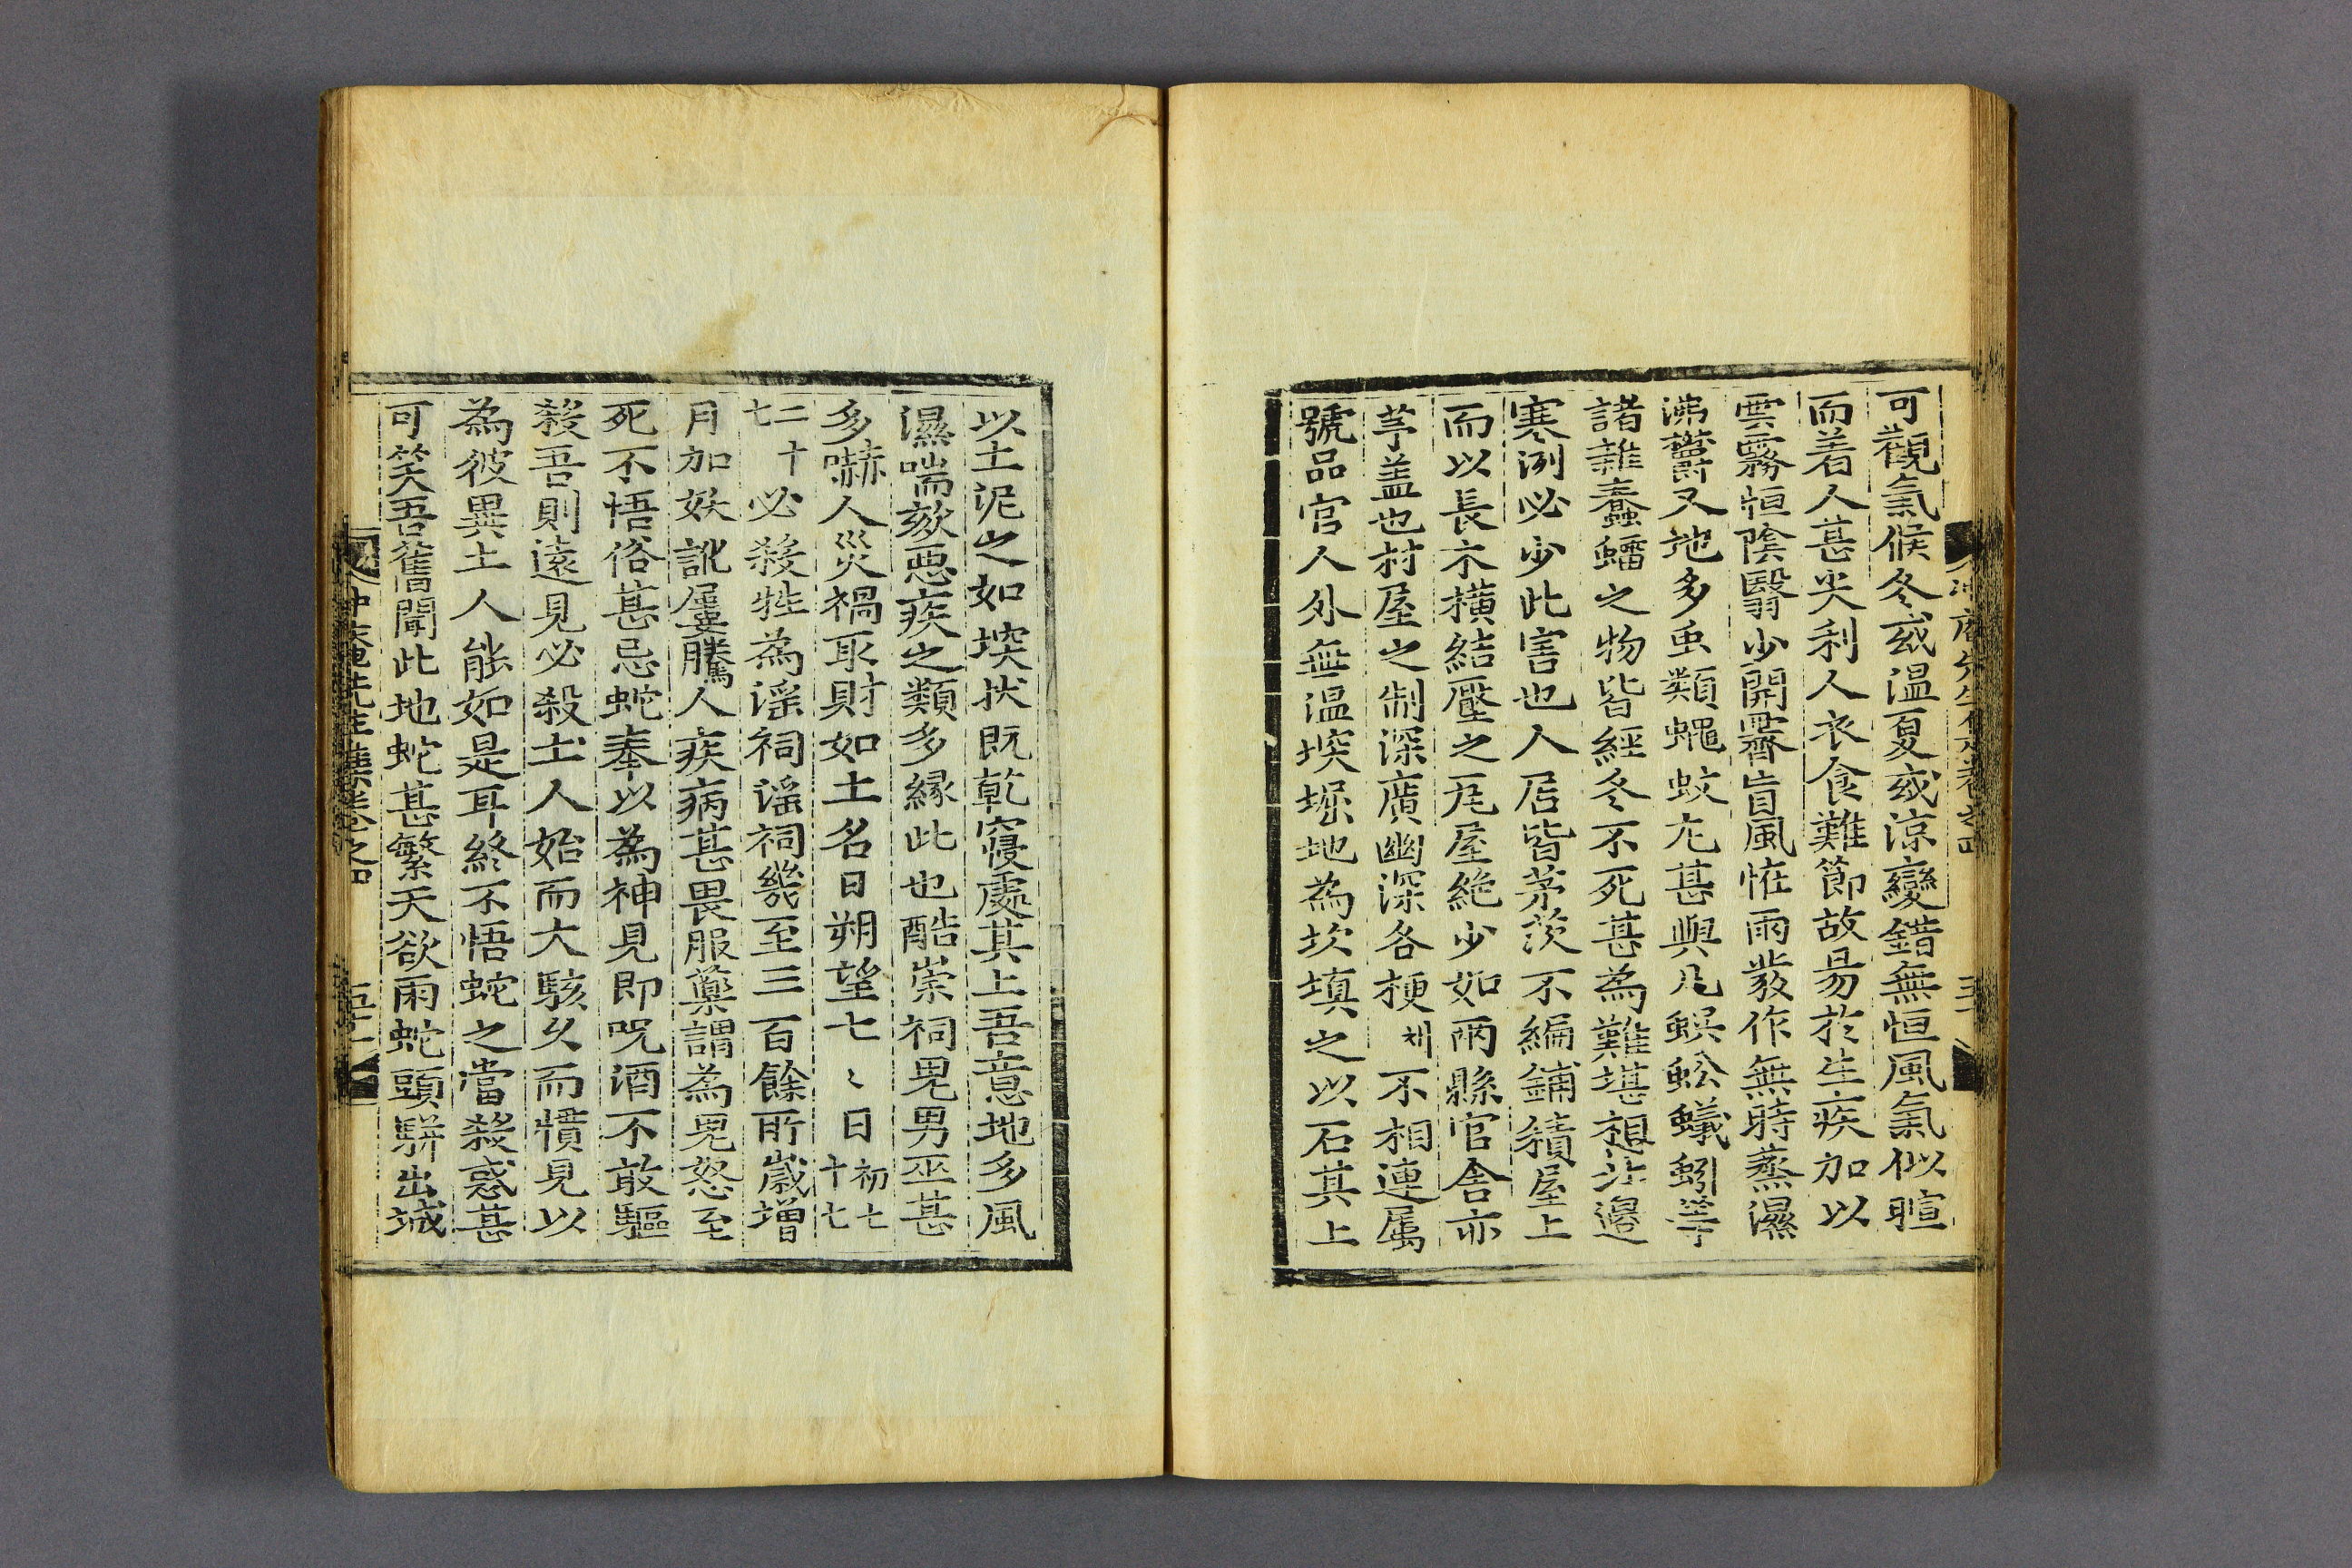 可觀氣候冬或温夏或凉變錯無恒風氣似暄
而着人甚尖利人衣食難節故易於生疾加以
雲霧恒陰翳少開霽盲風恠雨發作無時蒸濕
沸鬱又地多虫類蠅蚊尤甚與凡蜈蚣蟻蚓等
諸雜蠢蟠之物皆經冬不死甚為難堪想北邊
寒冽必少此害也人居皆茅茨不編鋪積屋上
而以長木橫結壓之瓦屋絶少如兩縣官舍亦
茅盖也村屋之制深廣幽深各梗채不相連属
號品官人外無温堗堀地為坎塡之以石其上
冲庵先生集卷之四
以土泥之如堗状既乾寢處其上吾意地多風
濕喘咳惡疾之類多縁此也酷崇祠鬼男巫甚
多嚇人災禍取財如土名日朔望七〻日初七十七
二十七必殺牲為滛祠滛祠幾至三百餘所歲增
月加妖訛屢騰人疾病甚畏服藥謂為鬼怒至
死不悟俗甚忌蛇奉以為神見即呪酒不敢驅
殺吾則遠見必殺土人始而大駭久而慣見以
為彼異土人能如是耳終不悟蛇之當殺惑甚
可笑吾舊聞此地蛇甚繁天欲雨蛇頭騈出城
冲菴先生集卷之四